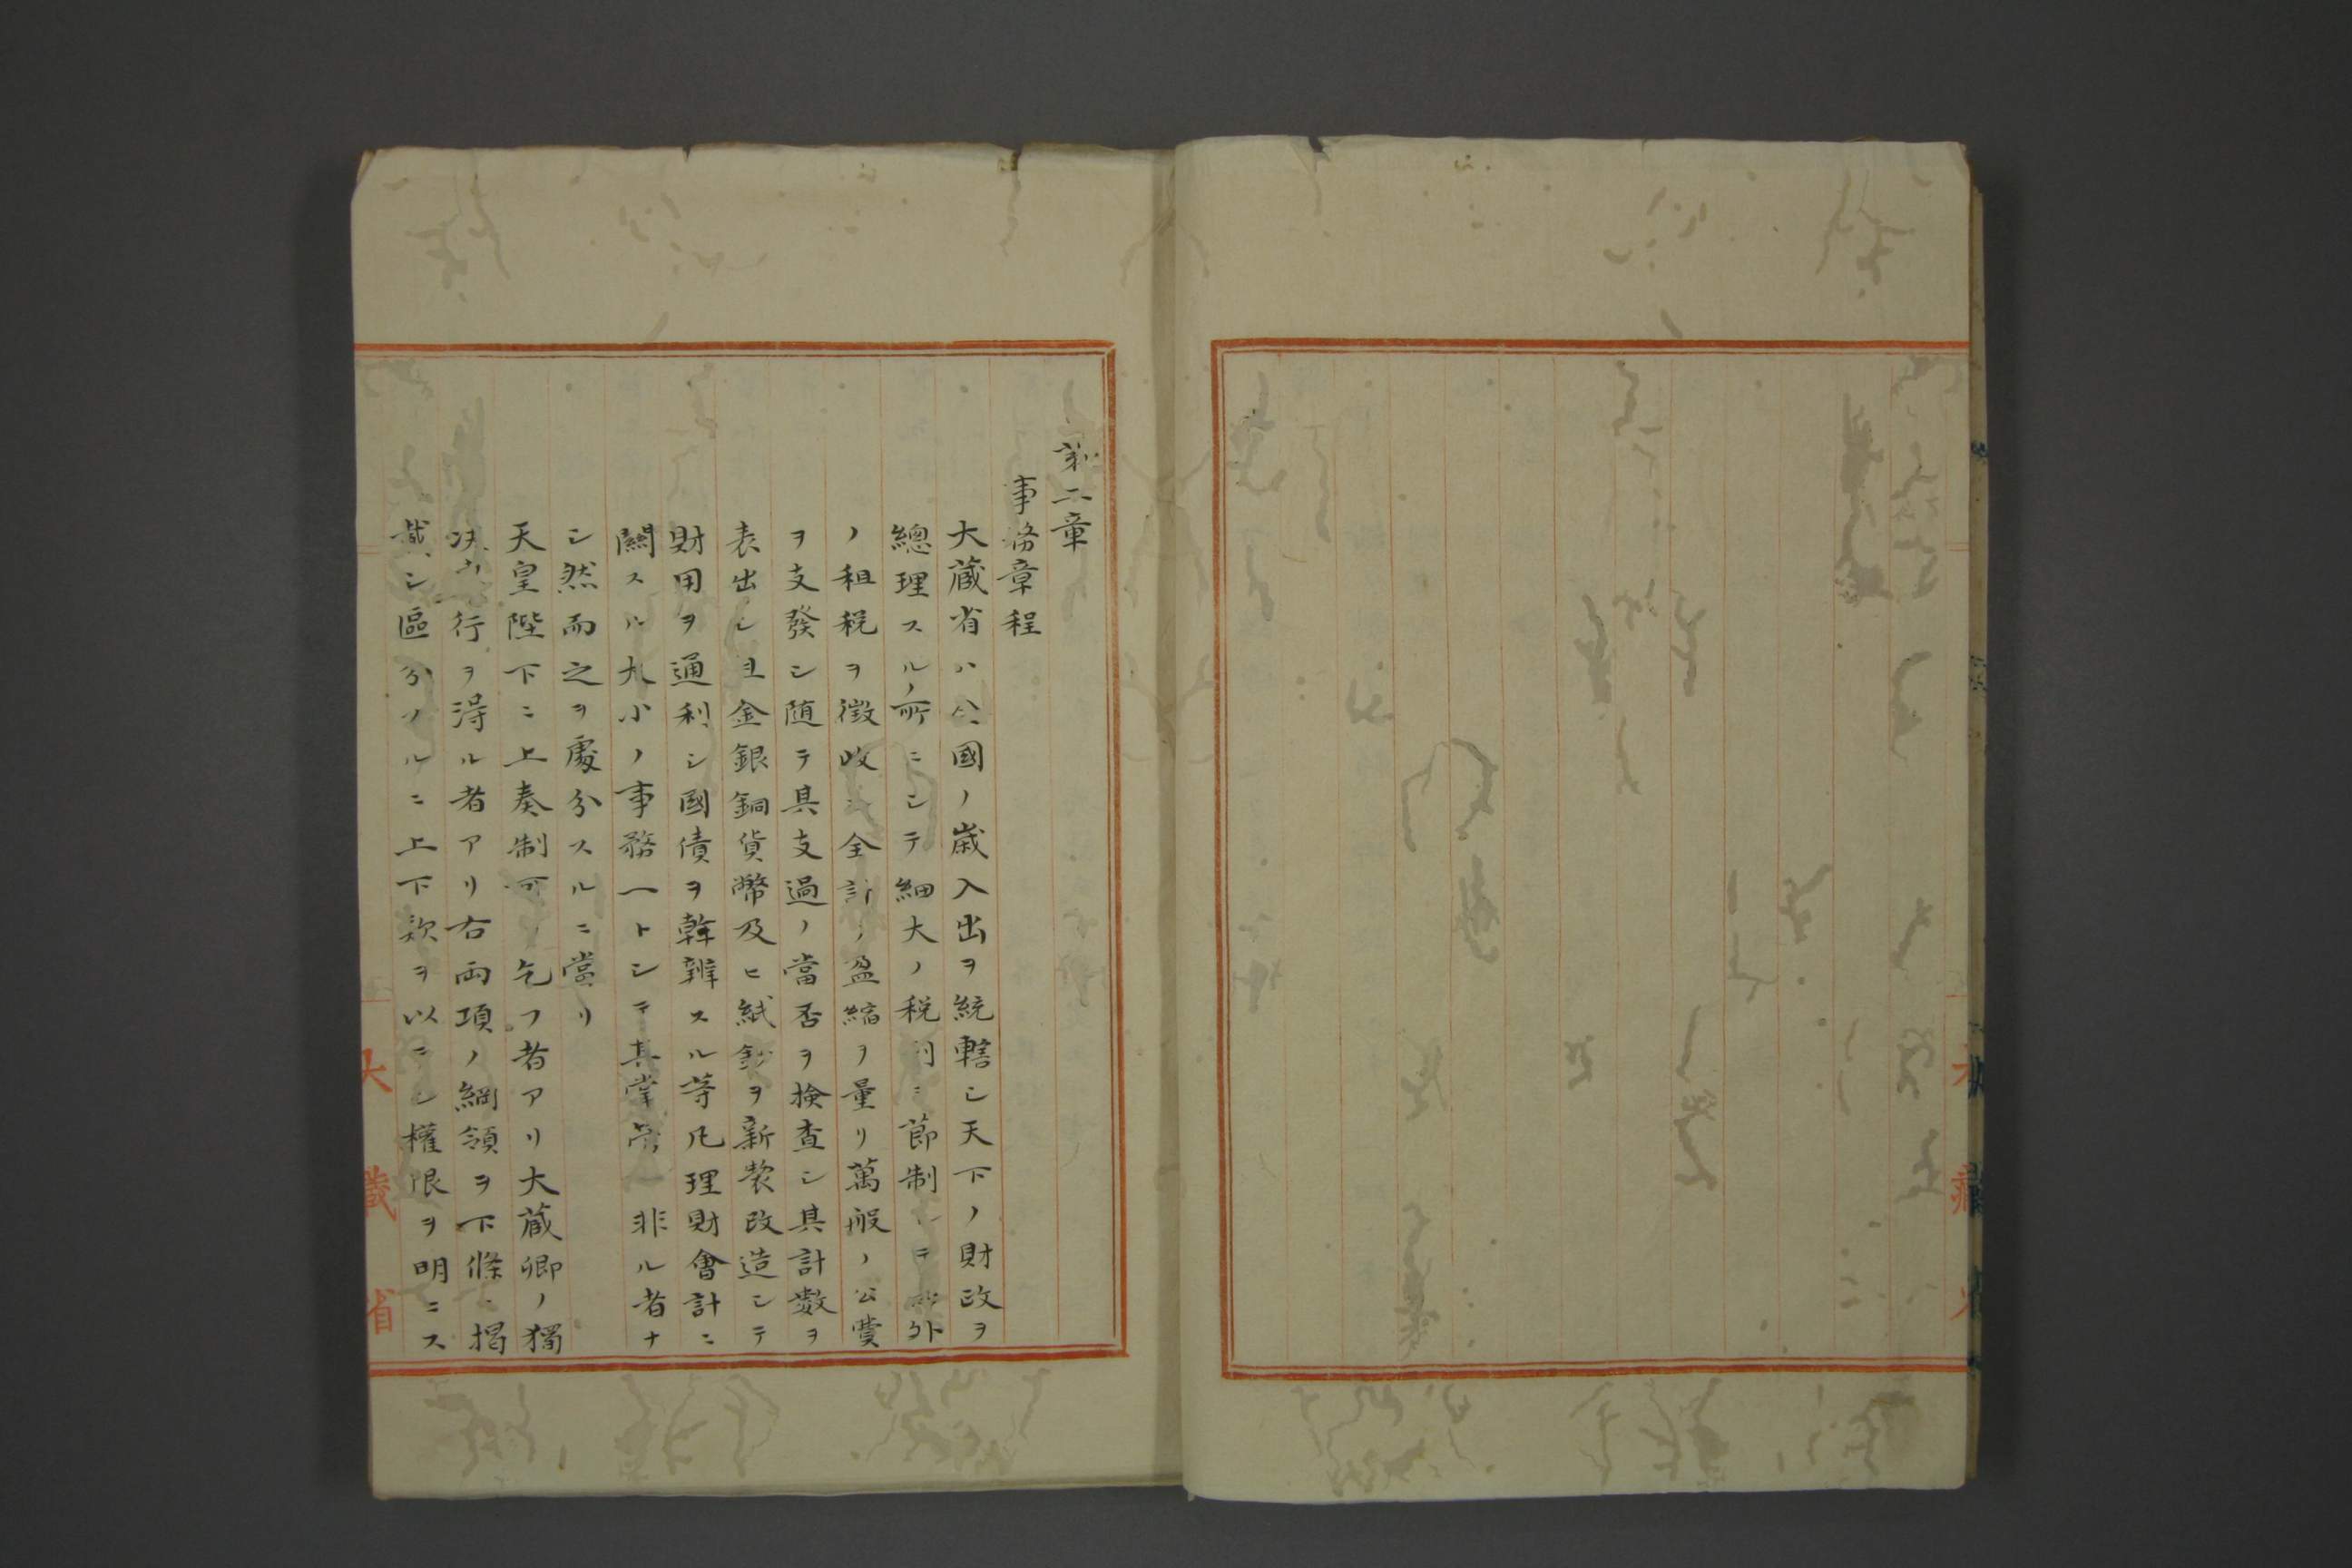 第二章
事務章程
大蔵省ハ全國ノ歳入出ヲ統轄シ天下ノ財政ヲ
總理スル所ニシテ細大ノ税則ニ節制シテ内外
ノ租税ヲ徴收シ全計ノ盈縮ヲ量リ萬般ノ公費
ヲ支發シ随テ其支過ノ當否ヲ檢査シ其計數ヲ
表出シ且金銀銅貨幣及ヒ紙鈔ヲ新製改造シテ
財用ヲ通利シ國債ヲ幹辨スル等凡理財會計ニ
關スル大小ノ事務一トシテ其掌管ニ非ル者ナ
シ然而之ヲ處分スルニ當リ
天皇陛下ニ上奏制可ヲ乞フ者アリ大蔵卿ノ獨
决専行ヲ得ル者アリ右兩項ノ綱領ヲ下條ニ掲
載シ區分スルニ上下款ヲ以テシ權限ヲ明ニス
大藏省